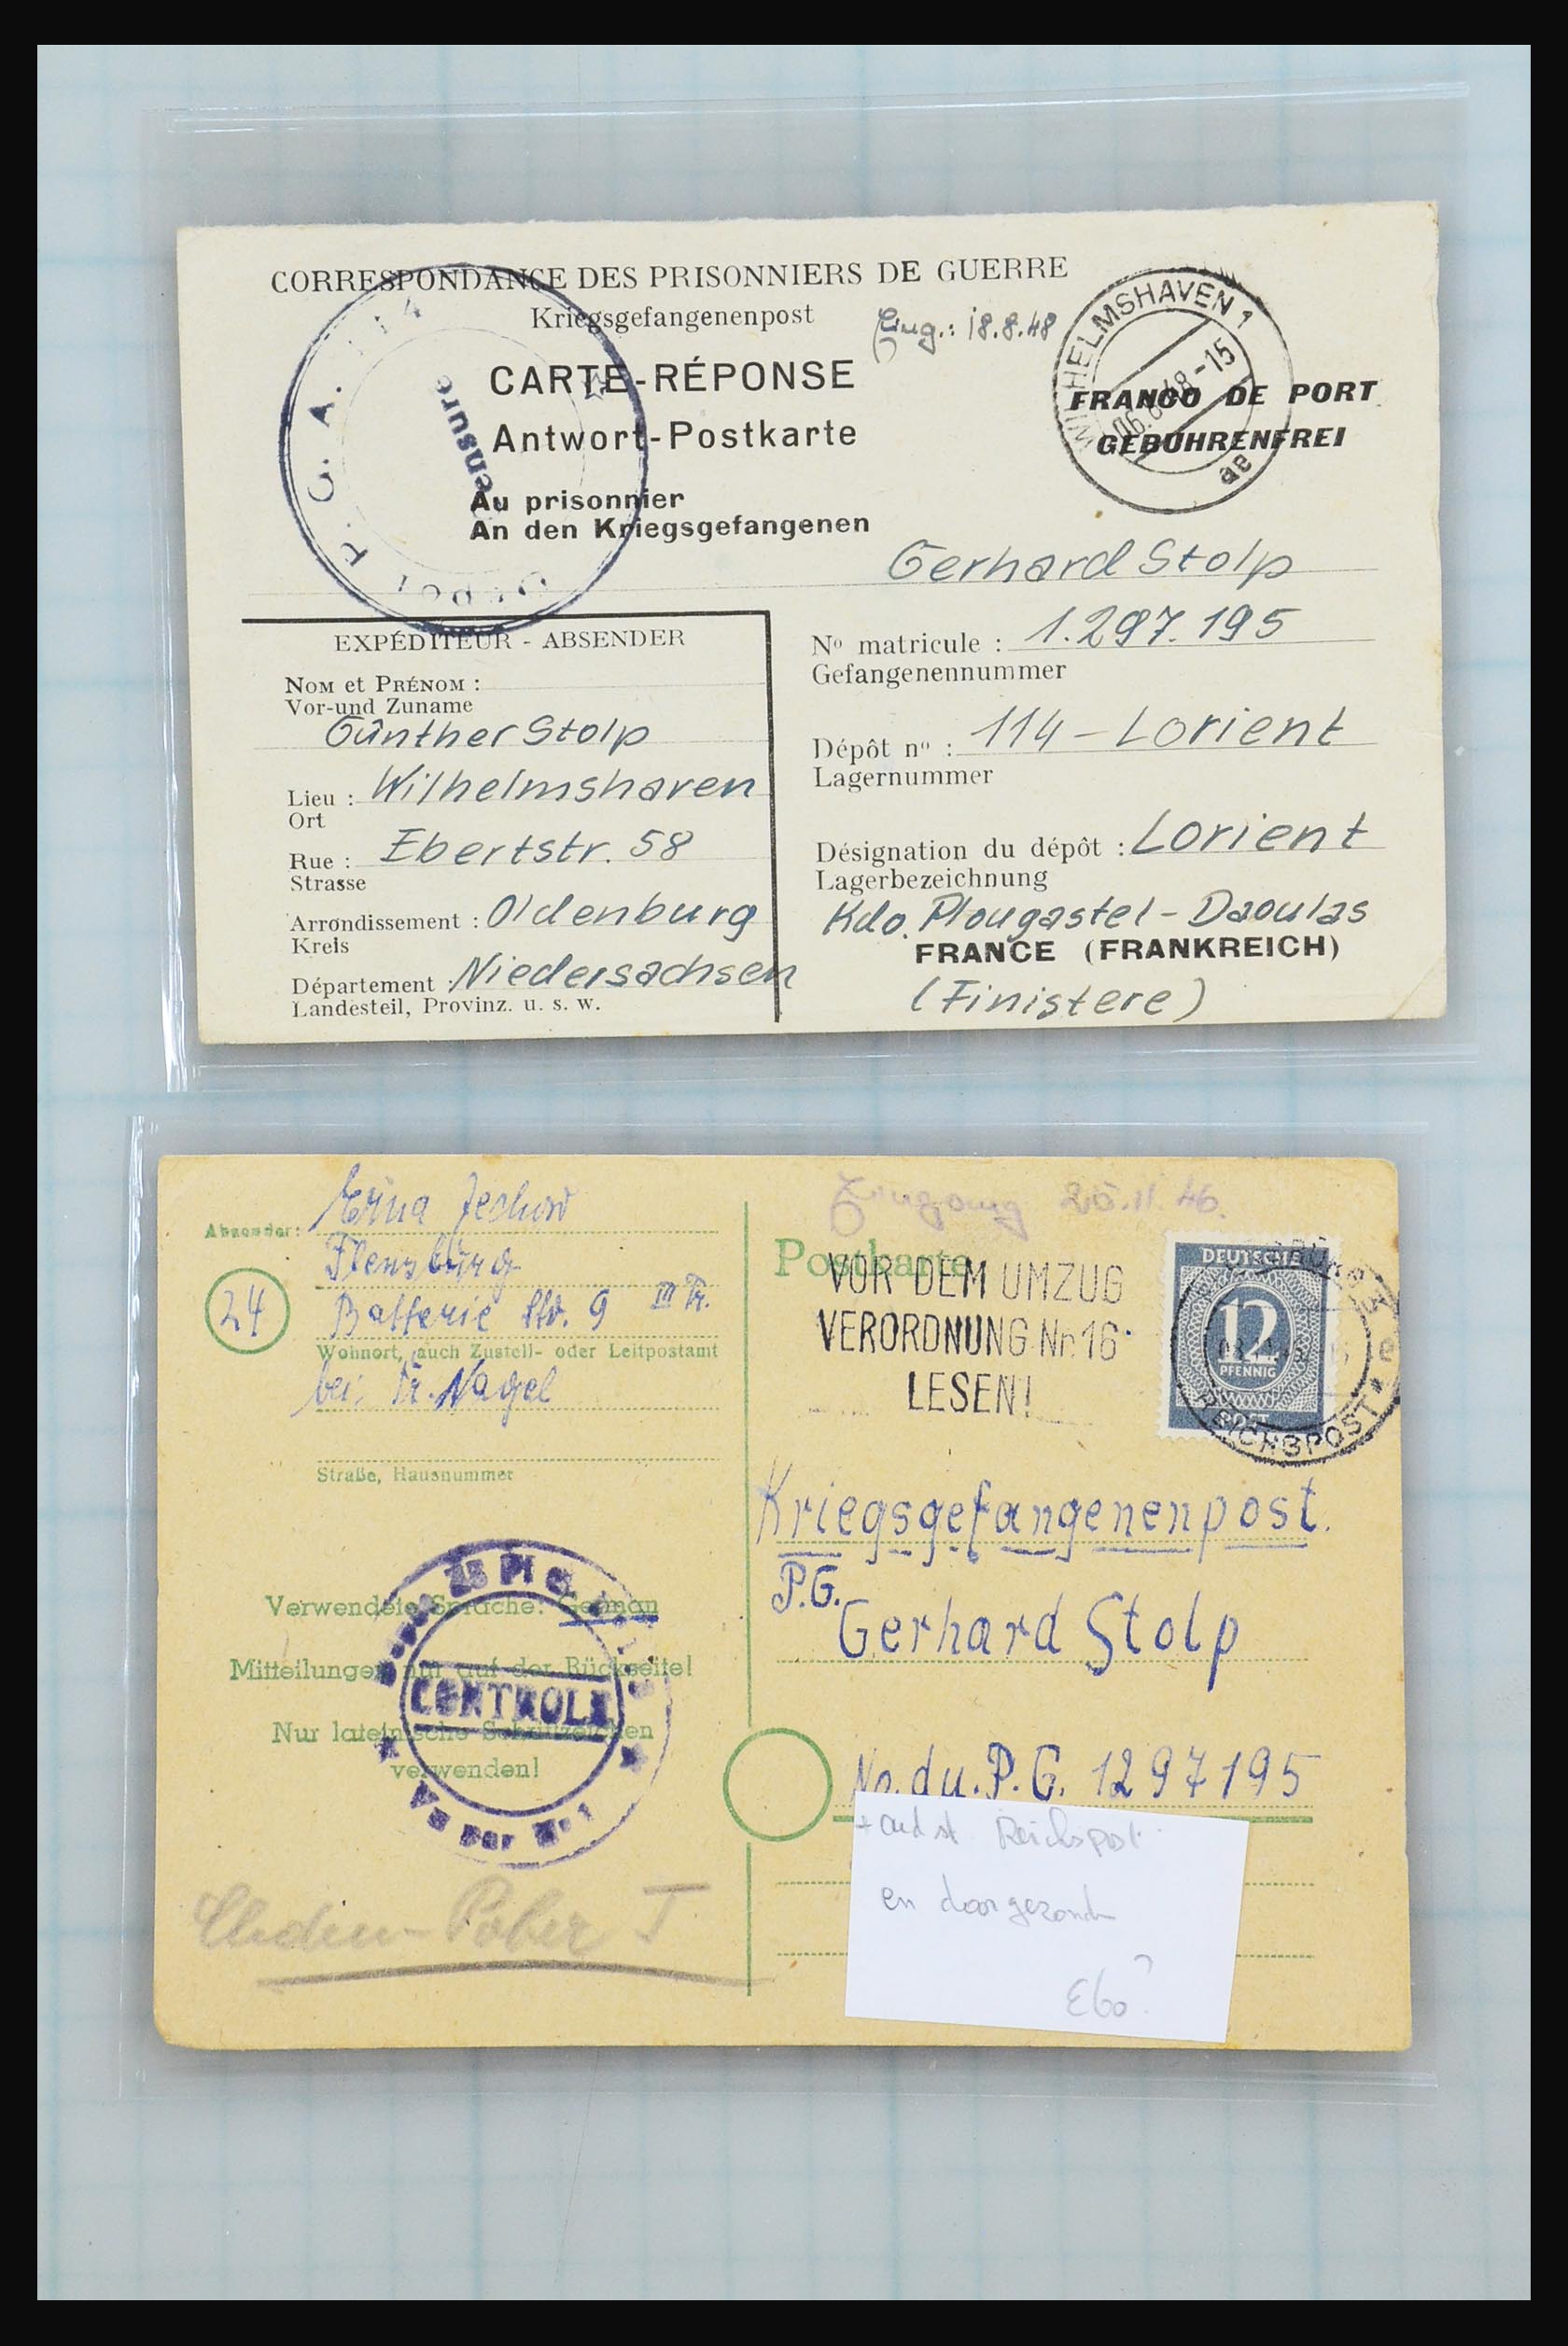 CORRESPONDANCE DES PRISONNIERS DE GUERRE
Kriegsgefangenenpost
Eing.: 18.8.48
CARTE-RÉPONSE
Antwort-Postkarte
Au prisonnier
An den Kriegsgefangenen
P.G.A.
Censure
WILHELMSHAVEN 1
-15
ae
FRANCO DE PORT
GEBÜHRENFREI
Gerhard Stolp
Nº matricule : 1.297.195
Gefangenennummer
Dépôt nº : 114 - Lorient
Lagernummer
Désignation du dépôt : Lorient
Lagerbezeichnung
Kdo. Plougastel - Daoulas
FRANCE (FRANKREICH)
(Finistere)
EXPÉDITEUR - ABSENDER
NOM et PRÉNOM :
Vor-und Zuname
Günther Stolp
Lieu : Wilhelmshaven
Ort
Rue : Ebertstr. 58
Strasse
Arrondissement : Oldenburg
Kreis
Département : Niedersachsen
Landesteil, Provinz. u. s. w.
Absender: Erna
Flensburg
24
Batterie Str. 9 III Tr.
Wohnort, auch Zustell- oder Leitpostamt
bei Fr. Nagel
Straße, Hausnummer
Verwendete Sprache: German
Mitteilungen nur auf der Rückseite!
Nur lateinische Schriftzeichen
verwenden!
CONTROLE
Eingang 25.11.46.
Postkarte
VOR DEM UMZUG
VERORDNUNG Nr. 16
LESEN!
DEUTSCHE
12
PFENNIG
POST
REICHSPOST
e
Kriegsgefangenenpost.
P.G.
Gerhard Stolp
No. du. P.G. 1297195
Reichspost
en doorgezonden
€60?